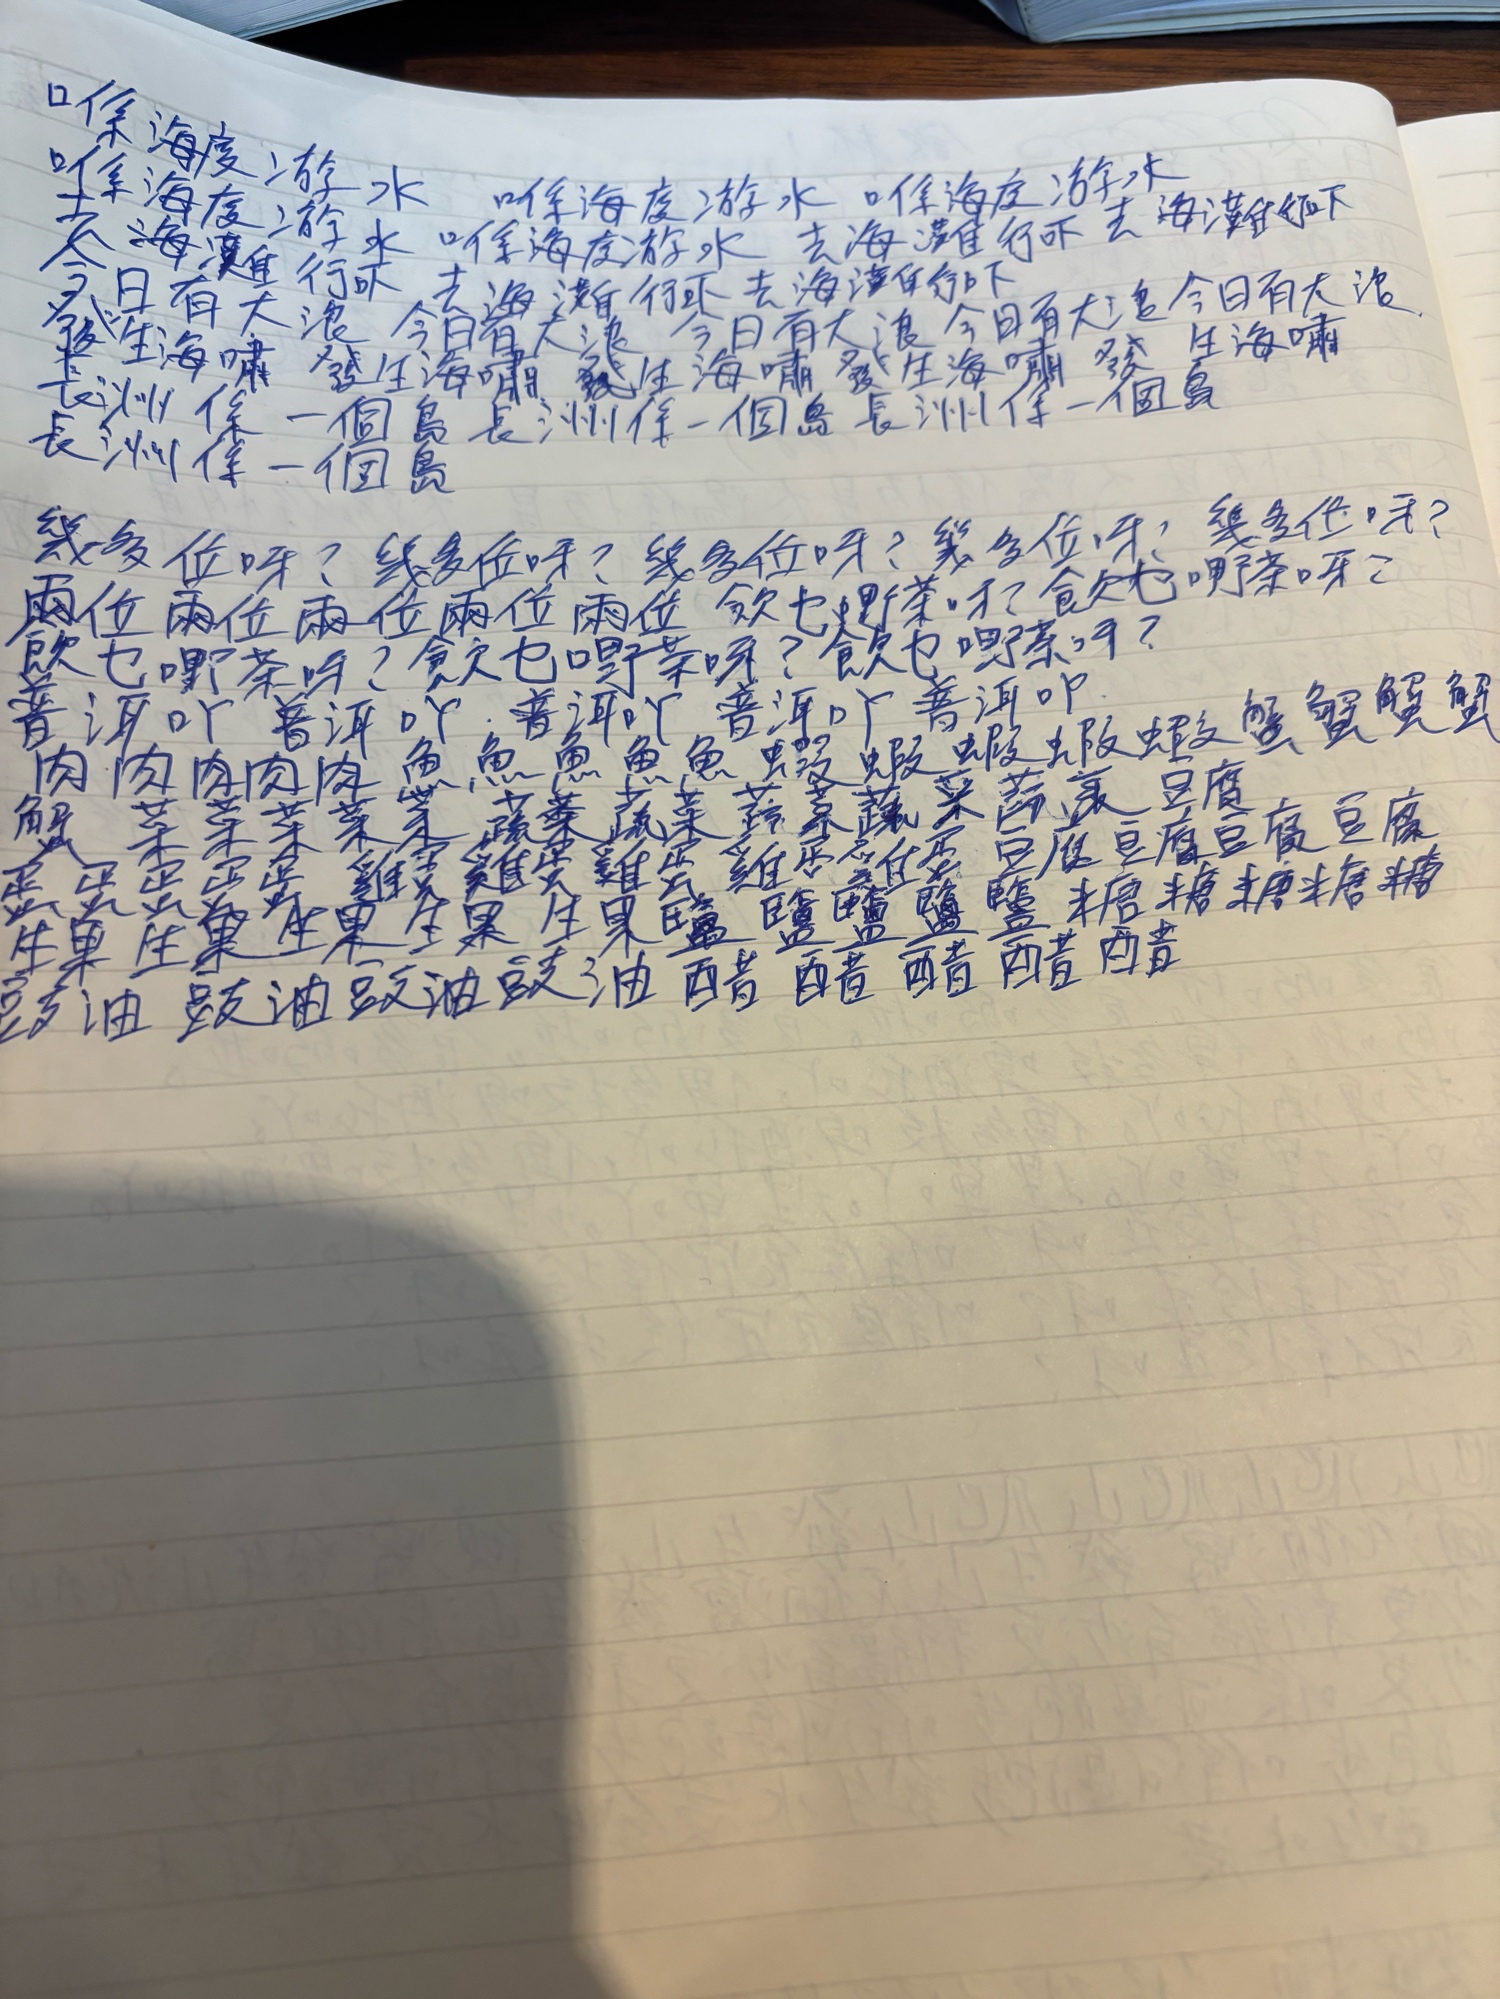 喺海度游水 喺海度游水 喺海度游水
喺海度游水 喺海度游水 去海灘行吓 去海灘行吓
去海灘行吓 去海灘行吓 去海灘行吓
今日有大浪 今日有大浪 今日有大浪 今日有大浪 今日有大浪
發生海嘯 發生海嘯 發生海嘯 發生海嘯 發生海嘯
長洲係一個島 長洲係一個島 長洲係一個島
長洲係一個島
幾多位呀？幾多位呀？幾多位呀？幾多位呀？幾多位呀？
兩位 兩位 兩位 兩位 兩位 飲乜嘢茶呀？飲乜嘢茶呀？
飲乜嘢茶呀？飲乜嘢茶呀？飲乜嘢茶呀？
普洱吖 普洱吖 普洱吖 普洱吖 普洱吖
肉 肉 肉 肉 肉 魚 魚 魚 魚 魚 蝦 蝦 蝦 蝦 蝦 蟹 蟹 蟹 蟹
蟹 菜 菜 菜 菜 菜 蔬菜 蔬菜 蔬菜 蔬菜 蔬 豆腐
蛋 蛋 蛋 蛋 蛋 雞蛋 雞蛋 雞蛋 雞蛋 雞蛋 豆腐 豆腐 豆腐 豆腐
生果 生果 生果 生果 生果 鹽 鹽 鹽 鹽 鹽 糖 糖 糖 糖 糖
豉油 豉油 豉油 豉油 醋 醋 醋 醋 醋